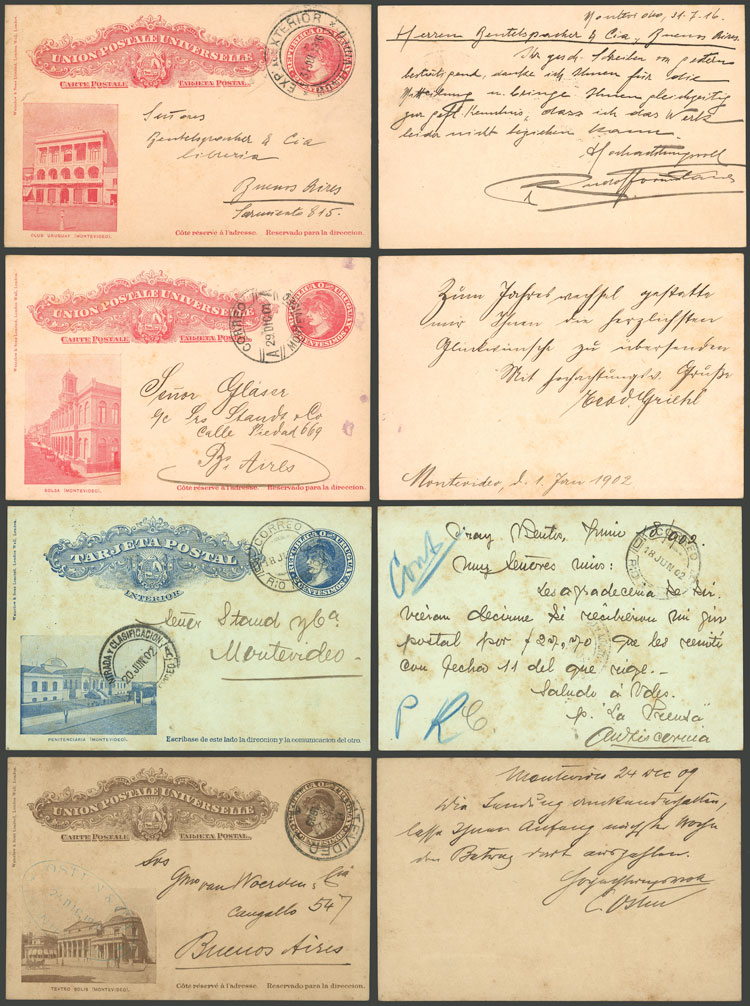 UNION POSTALE UNIVERSELLE
CARTE POSTALE TARJETA POSTAL
REPUBLICA O. DEL URUGUAY
EXTERIOR
Señores
Beutelspacher & Cia
libreria
Buenos Aires
Sarmiento 815.
CLUB URUGUAY (MONTEVIDEO).
Côté réservé à l'adresse. Reservado para la direccion.
Montevideo, 31.7.16.
Herren Beutelspacher & Cia, Buenos Aires.
Ihr gesch. Schreiben von gestern
bestätigend, danke ich Ihnen für die
Mitteilung u. bringe Ihnen gleichzeitig
zur gefl. Kenntnis, dass ich das Werk
leider nicht
Hochachtungsvoll
UNION POSTALE UNIVERSELLE
CARTE POSTALE TARJETA POSTAL
CENTESIMOS
CORREO
29 DIC 01
Señor Gläser
Srs Staudt & Co
Calle Piedad 669
Bs Aires
BOLSA (MONTEVIDEO).
Côté réservé à l'adresse. Reservado para la direccion.
Zum Jahreswechsel gestatte
mir Ihnen die herzlichsten
Glückwünsche zu übersenden
Mit hochachtungsv. Grüße
Teod. Griehl
Montevideo, d. 1. Jan 1902
TARJETA POSTAL
INTERIOR
CENTESIMOS
CORREO
18 JUN
RIO
Señor Staud y Ca
Montevideo
Y CLASIFICACION
20 JUN 02
PENITENCIARIA (MONTEVIDEO).
Escribase de este lado la direccion y la comunicacion del otro.
Cont
Fray Bentos, Junio 18 902.
CORREO
18 JUN 02
Muy Señores mios:
Les agradeceria se sir
vieran decirme si recibieron mi giro
postal por $ 27,70 que les remiti
con fecha 11 del que rige.-
Saludo á Vdes.
p. "La Prensa"
P R C
UNION POSTALE UNIVERSELLE
CARTE POSTALE TARJETA POSTAL
MONTEVIDEO
Srs
Gmo van Woerden, & Cia
Cangallo 547
Buenos Aires
TEATRO SOLIS (MONTEVIDEO).
Côté réservé à l'adresse. Reservado para la direccion.
Montevideo 24 Dec 09
Die Sendung dankend erhalten,
lasse Ihnen Anfang nächster Woche
den Betrag dort auszahlen.
Hochachtungsvoll
C. Osten